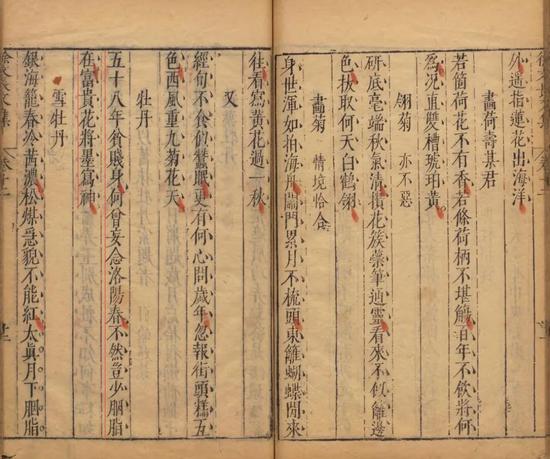 外遇指蓮花出海洋
畫荷壽某君
若箇荷花不有香若條荷柄不堪觴百年不飲將何
爲況直雙槽琥珀黃
翎菊 亦不惡
研底毫端秋氣清擷花簇蘂筆通靈看來不似籬邊
色拔取何天白鶴翎
畫菊 情境恰合
身世渾如拍海舟關門累月不梳頭東籬蝴蝶閒來
往看寫黃花過一秋
又
經旬不食似蠶眠更有何心問歲年忽報街頭糕五
色西風重九菊花天
牡丹
五十八年貧賤身何曾妄念洛陽春不然豈少胭脂
在富貴花將墨寫神
雪牡丹
銀海籠春冷茜濃松煤急貌不能紅太眞月下胭脂